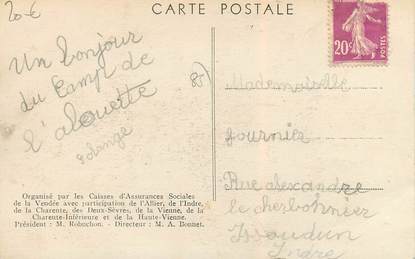 20€
CARTE POSTALE
20c
POSTES
Un bonjour
du Camp de
l'alouette
solange
85)
Mademoiselle
fournier
Rue alexandre
le cherbonnier
Issoudun
Indre
Organisé par les Caisses d'Assurances Sociales
de la Vendée avec participation de l'Allier, de l'Indre,
de la Charente, des Deux-Sèvres, de la Vienne, de la
Charente-Inférieure et de la Haute-Vienne.
Président : M. Robuchon. - Directeur : M. A. Bonnet.